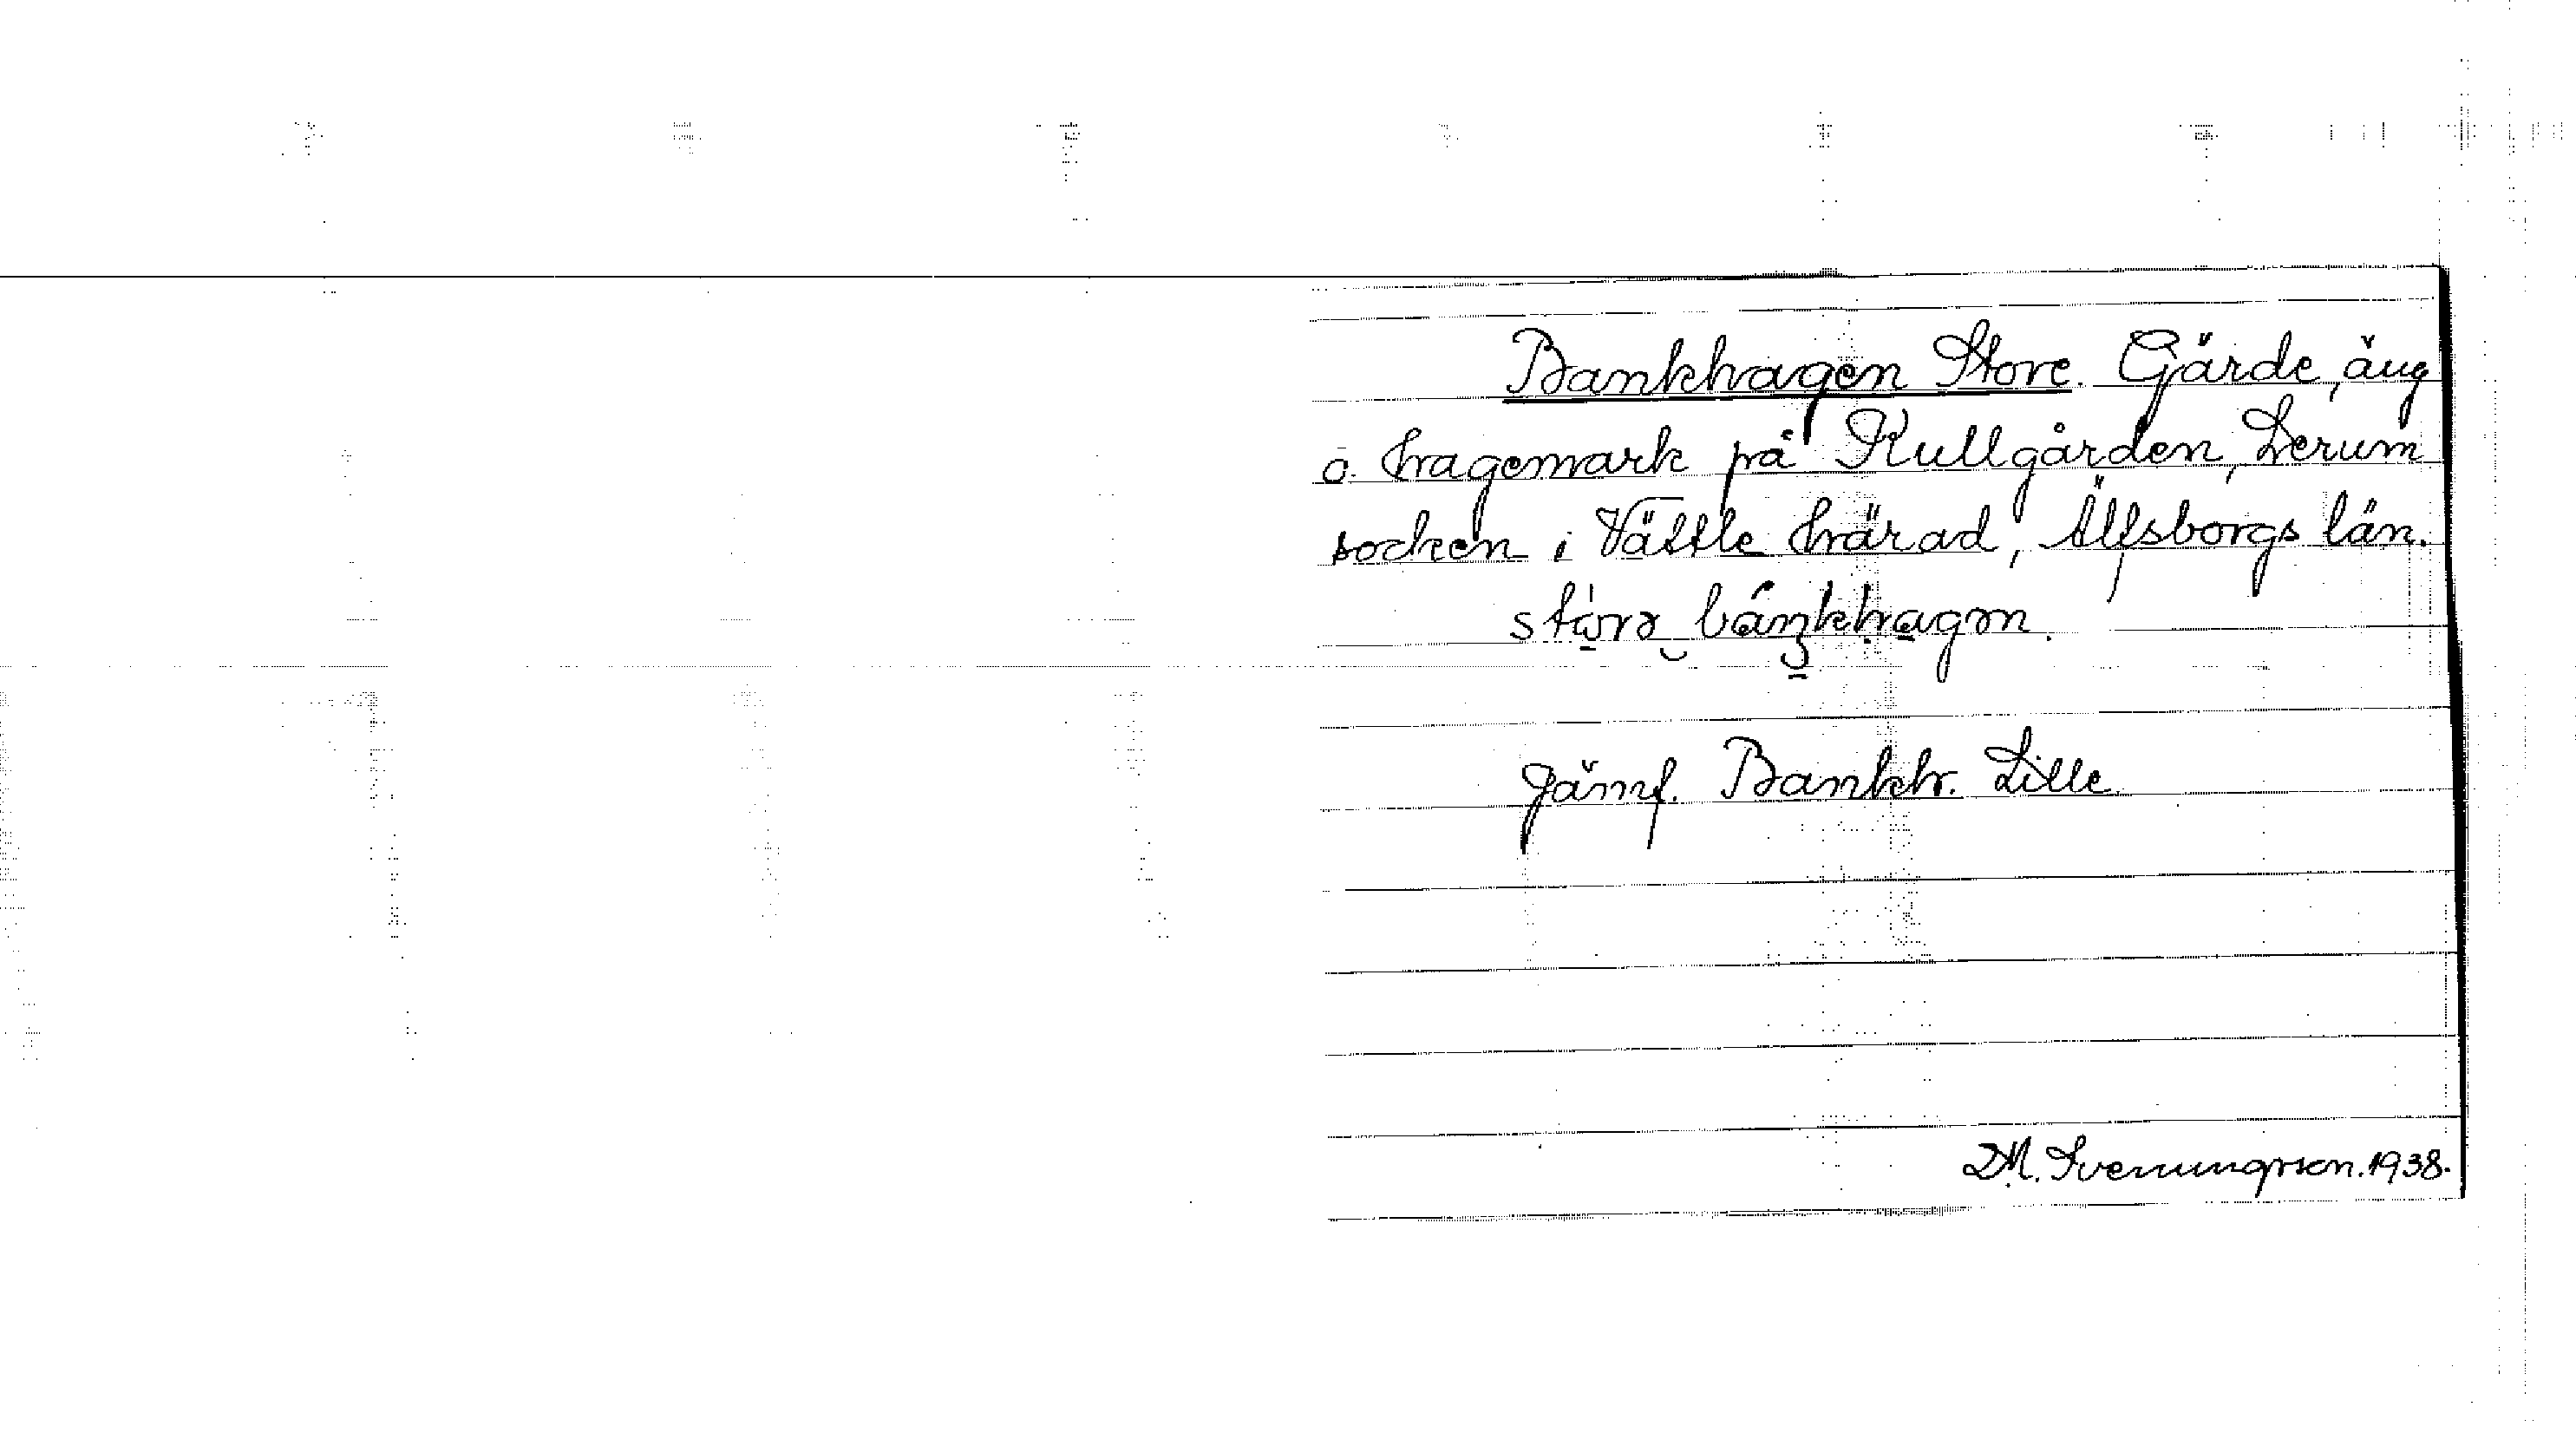 Bankhagen Store. Gärde, äng
o. hagemark på Kullgården, Lerum
socken i Vättle härad, Älfsborgs län.
Jämf. Bankh. Lille.
D.M. Svenungsson. 1938.